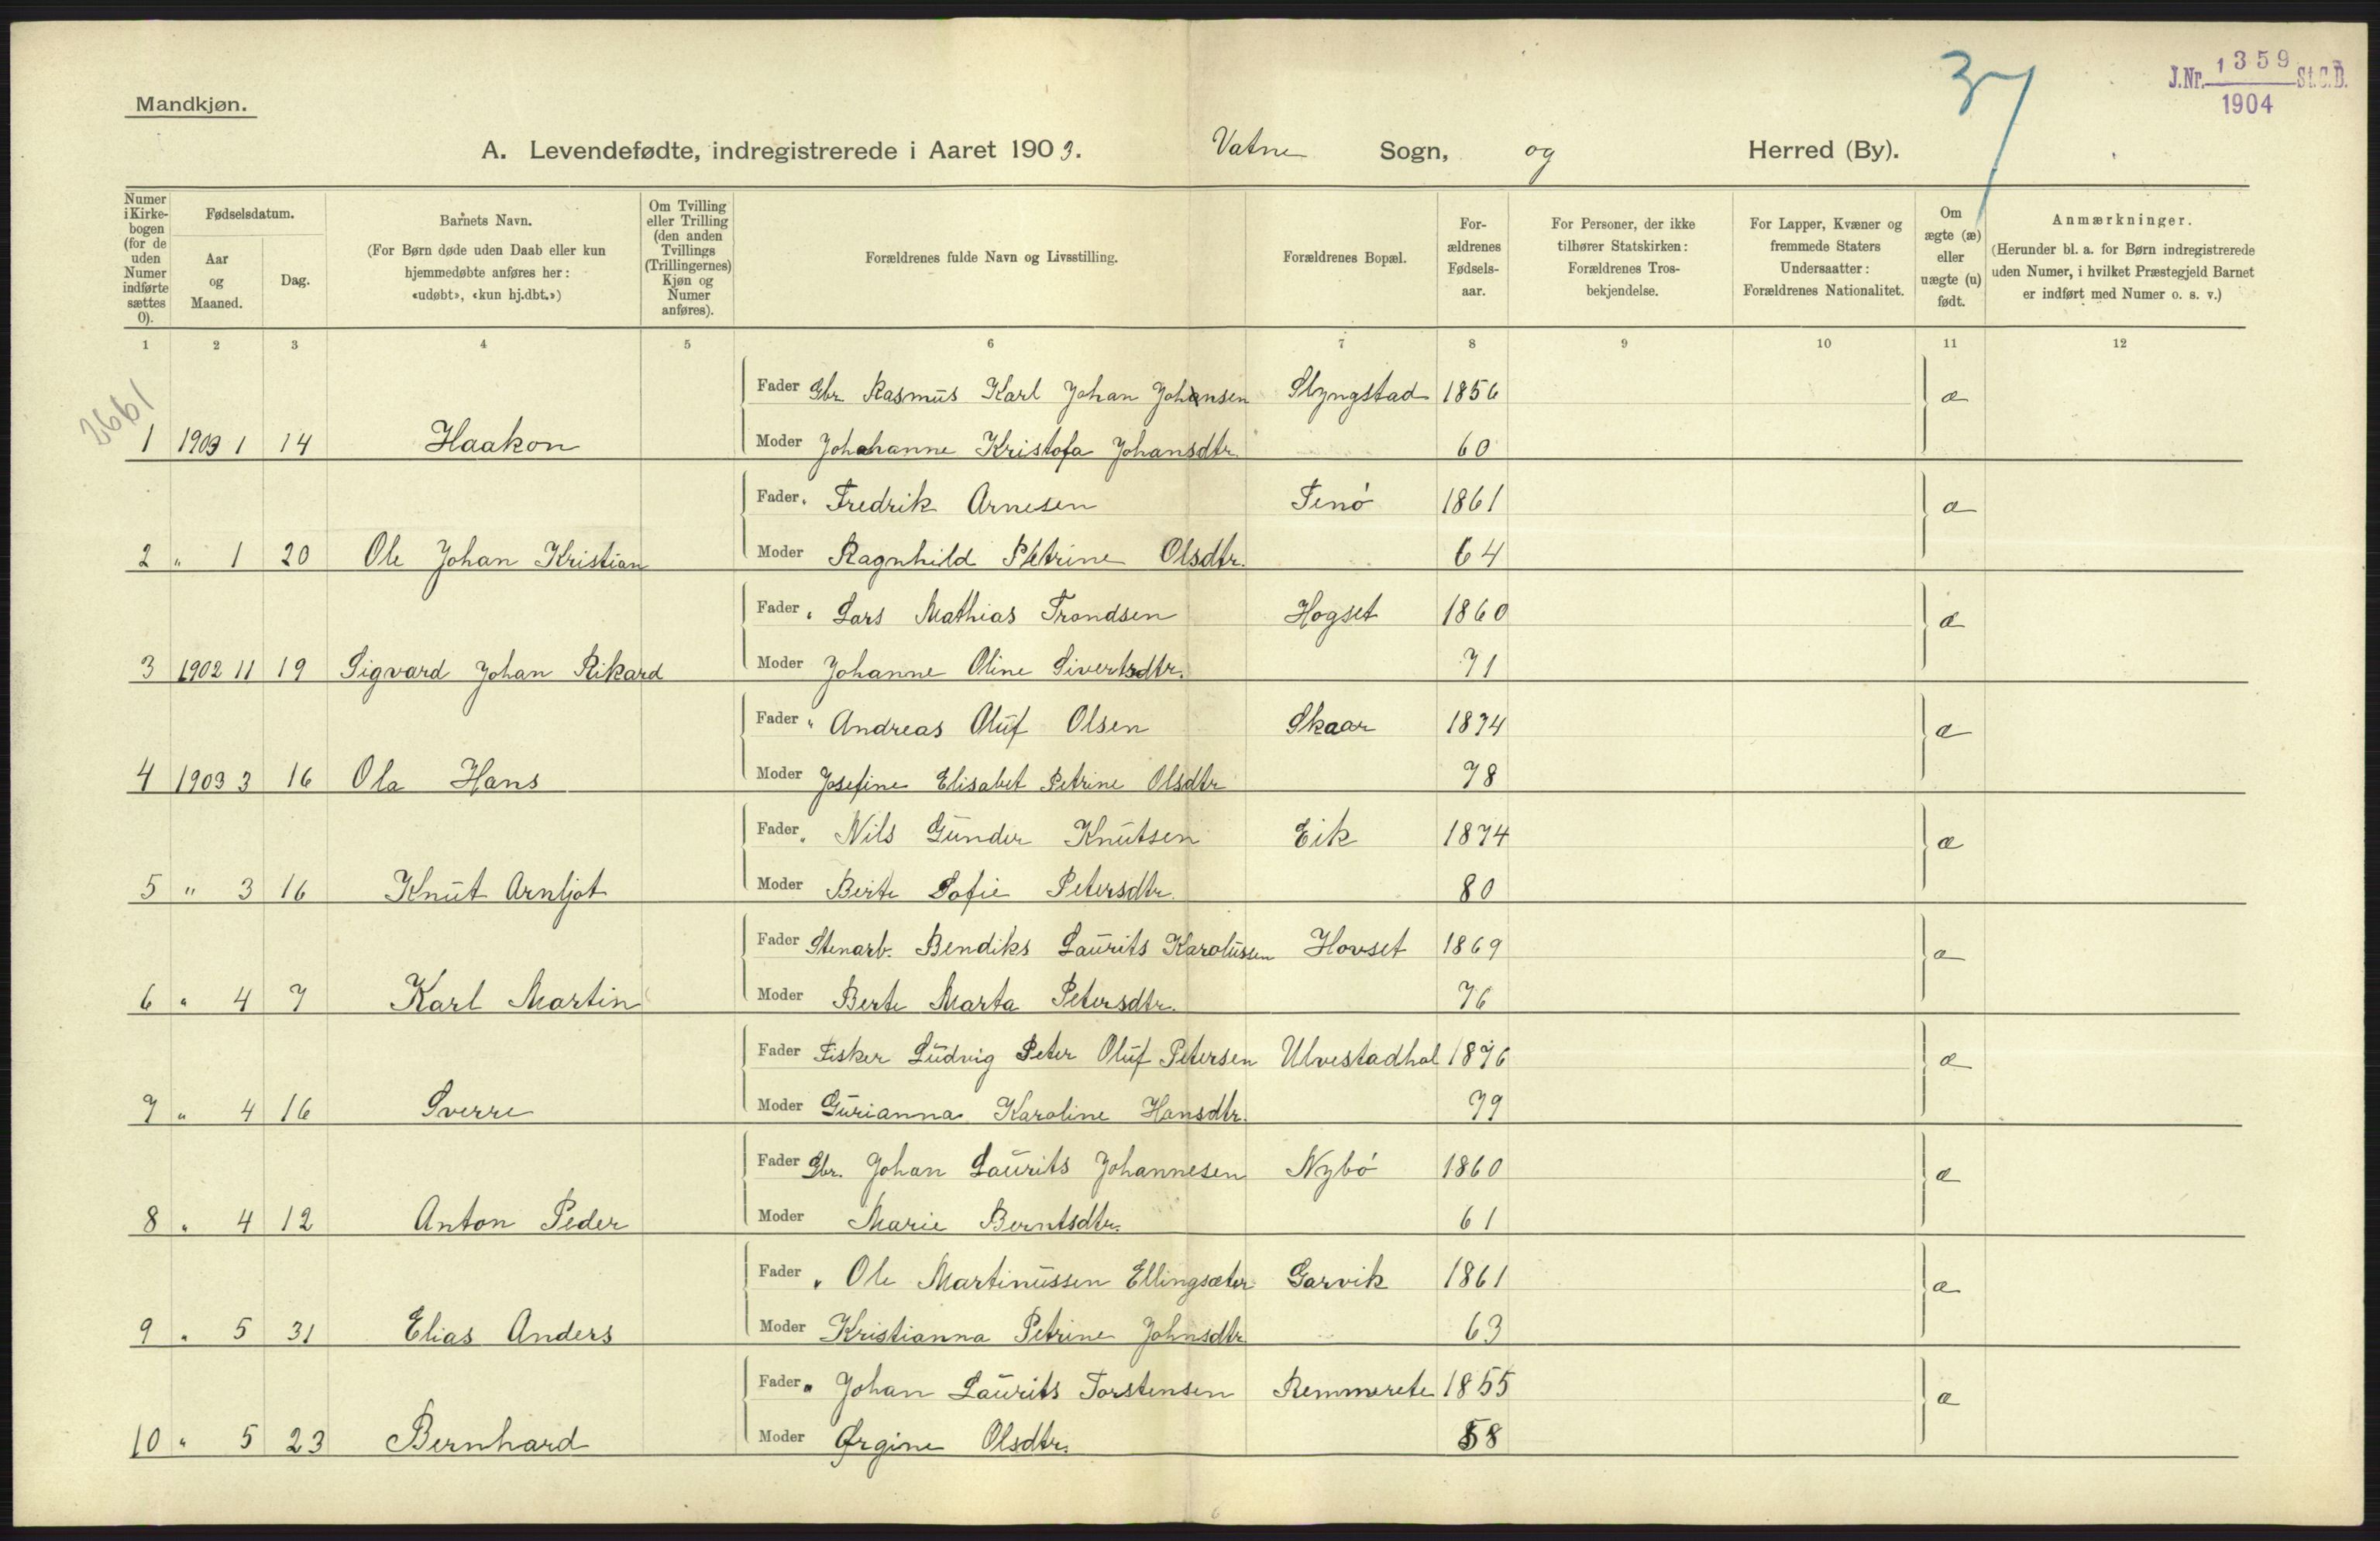 37
J.Nr. 1359 St.C.B.
1904
Mandkjøn.
A. Levendefødte, indregistrerede i Aaret 1903. Vatne Sogn, og Herred (By).
Numer i Kirkebogen (for de uden Numer indførte sættes 0).
Fødselsdatum.
Aar og Maaned.
Dag.
Barnets Navn.
(For Børn døde uden Daab eller kun
hjemmedøbte anføres her:
«udøbt», «kun hj.dbt.»)
Om Tvilling
eller Trilling
(den anden
Tvillings
(Trillingernes)
Kjøn og
Numer
anføres).
Forældrenes fulde Navn og Livsstilling.
Forældrenes Bopæl.
For-
ældrenes
Fødsels-
aar.
For Personer, der ikke
tilhører Statskirken:
Forældrenes Tros-
bekjendelse.
For Lapper, Kvæner og
fremmede Staters
Undersaatter:
Forældrenes Nationalitet.
Om
ægte (æ)
eller
uægte (u)
født.
Anmærkninger.
(Herunder bl. a. for Børn indregistrerede
uden Numer, i hvilket Præstegjeld Barnet
er indført med Numer o. s. v.)
1 2 3 4 5 6 7 8 9 10 11 12
2661
Fader Gbr. Rasmus Karl Johan Johansen Slyngstad 1856 æ
1 1903 1 14 Haakon Moder Johanne Kristofa Johansdtr. 60
Fader " Fredrik Arnesen Tenø 1861 æ
2 " 1 20 Ole Johan Kristian Moder Ragnhild Petrine Olsdtr. 64
Fader " Lars Mathias Trondsen Hogset 1860 æ
3 1902 11 19 Sigvard Johan Rikard Moder Johanne Oline Sivertsdtr. 71
Fader " Andreas Oluf Olsen Skaar 1874 æ
4 1903 3 16 Ola Hans Moder Josefine Elisabet Petrine Olsdtr 78
Fader " Nils Gunder Knutsen Eik 1874 æ
5 " 3 16 Knut Arnljot Moder Berte Sofie Petersdtr. 80
Fader Stenarb. Bendiks Laurits Karolussen Hovset 1869 æ
6 " 4 7 Karl Martin Moder Berte Marta Petersdtr. 76
Fader Fisker Ludvig Peter Oluf Petersen Ulvestadhol 1876 æ
7 " 4 16 Sverre Moder Gurianna Karoline Hansdtr. 79
Fader Gbr. Johan Laurits Johannesen Nybø 1860 æ
8 " 4 12 Anton Peder Moder Marie Berntsdtr. 61
Fader " Ole Martinussen Ellingsæter Garvik 1861 æ
9 " 5 31 Elias Anders Moder Kristianna Petrine Johnsdtr 63
Fader " Johan Laurits Torstensen Remmerete 1855 æ
10 " 5 23 Bernhard Moder Ørgine Olsdtr. 58